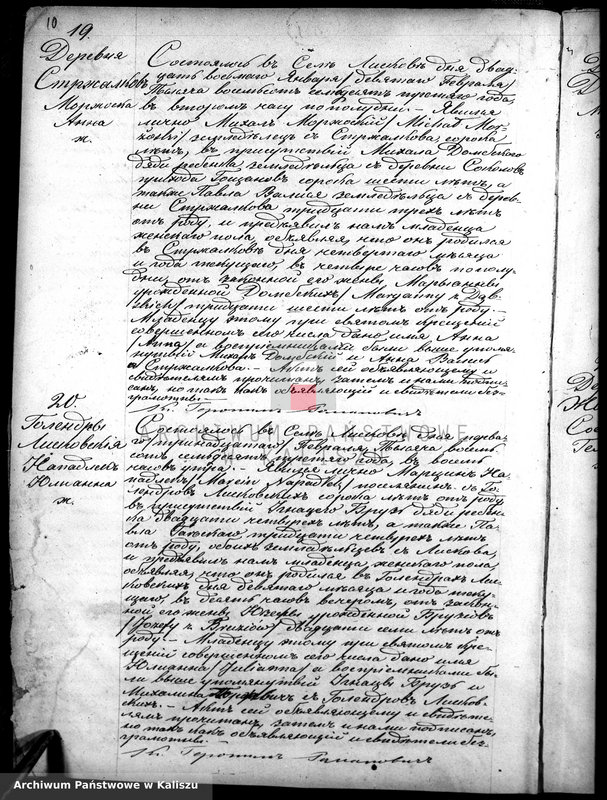 10
19.
Деревня
Стржалковъ
Моржоска
Анна
ж.
Состоялось въ Селѣ Лисковѣ дня двад-
цать восьмаго Января /девятаго Февраля/
Тысяча восемьсотъ семдесятъ третяго года,
въ второмъ часу пополудни. – Явился
лично Михалъ Моржоский /Michał Mor-
żoski/ земледѣлецъ съ Стржалкова сорока
лѣтъ, въ присутствіи Михала Домбскаго
дяди ребенка земледѣльца съ деревни
прихода сорока шести лѣтъ, а
также Павла земледѣльца съ дерев-
ни Стржалкова тридцати трехъ лѣтъ
отъ роду, и предъявилъ намъ младенца
женскаго пола, объявляя, что онъ родился
въ Стржалковѣ дня четвертаго мѣсяца
и года текущаго, въ четыре часовъ пополу-
дни, отъ законной его жены Марьянны
урожденной Домбскихъ /Maryanny z Dąb-
skich/ тридцати шести лѣтъ отъ роду. –
Младенцу этому при святомъ крещеніи
совершенномъ сего числа дано имя Анна
/Anna/ а воспріемниками были выше упомя-
нутый Михалъ Домбский и Анна
съ Стржалкова. – Актъ сей объявляющему и
свидѣтелямъ прочитанъ, затемъ и нами подпи-
санъ, но такъ какъ объявляющій и свидѣтели без-
грамотны.
Кс. Геронимъ Романовичъ
20
Голендры
Лисковскія
Нападлекъ
Юліанна
ж.
Состоялось въ Селѣ Лисковѣ дня перва-
го /тринадцатаго/ Февраля, Тысяча восемь-
сотъ семдесятъ третяго года, въ восемь
часовъ утра. – Явился лично Марцинъ На-
падлекъ /Marcin поселянинъ съ Го-
лендровъ Лисковскихъ сорока лѣтъ отъ роду
въ присутствіи Игнацего Брузъ дяди ребен-
ка двадцати четырехъ лѣтъ, а также Па-
вла тридцати четырехъ лѣтъ
отъ роду, обоихъ земледѣльцевъ съ Лискова,
и предъявилъ намъ младенца женскаго пола,
объявляя, что онъ родился въ Голендрахъ Лис-
ковскихъ дня девятаго мѣсяца и года теку-
щаго, въ десять часовъ вечеромъ, отъ закон-
ной его жены Юзефы урожденной Брузовъ
/Józefy z двадцати семи лѣтъ отъ
роду. – Младенцу этому при святомъ кре-
щеніи совершенномъ сего числа дано имя
Юліанна /Julianna/ а воспріемниками бы-
ли выше упомянутый Игнацы Брузъ и
Михалина съ Голендровъ Лисков-
скихъ. – Актъ сей объявляющему и свидѣте-
лямъ прочитанъ, затемъ и нами подписанъ,
но такъ какъ объявляющій и свидѣтели без-
грамотны.
Кс. Геронимъ Романовичъ
ARCHIWUM PAŃSTWOWE
Archiwum Państwowe w Kaliszu